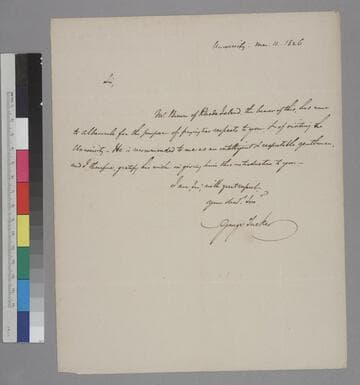 University. Mar. 11. 1826
Sir,
Mr. Brown of Rhode Island the bearer of this, has come
to Albemarle for the purpose of paying his respects to you & of visiting the
University — He is recommended to me as an intelligent & respectable gentleman,
and I therefore gratify his wish in giving him this introduction to you —
I am Sir, with great respect
your obedt. servt
George Tucker